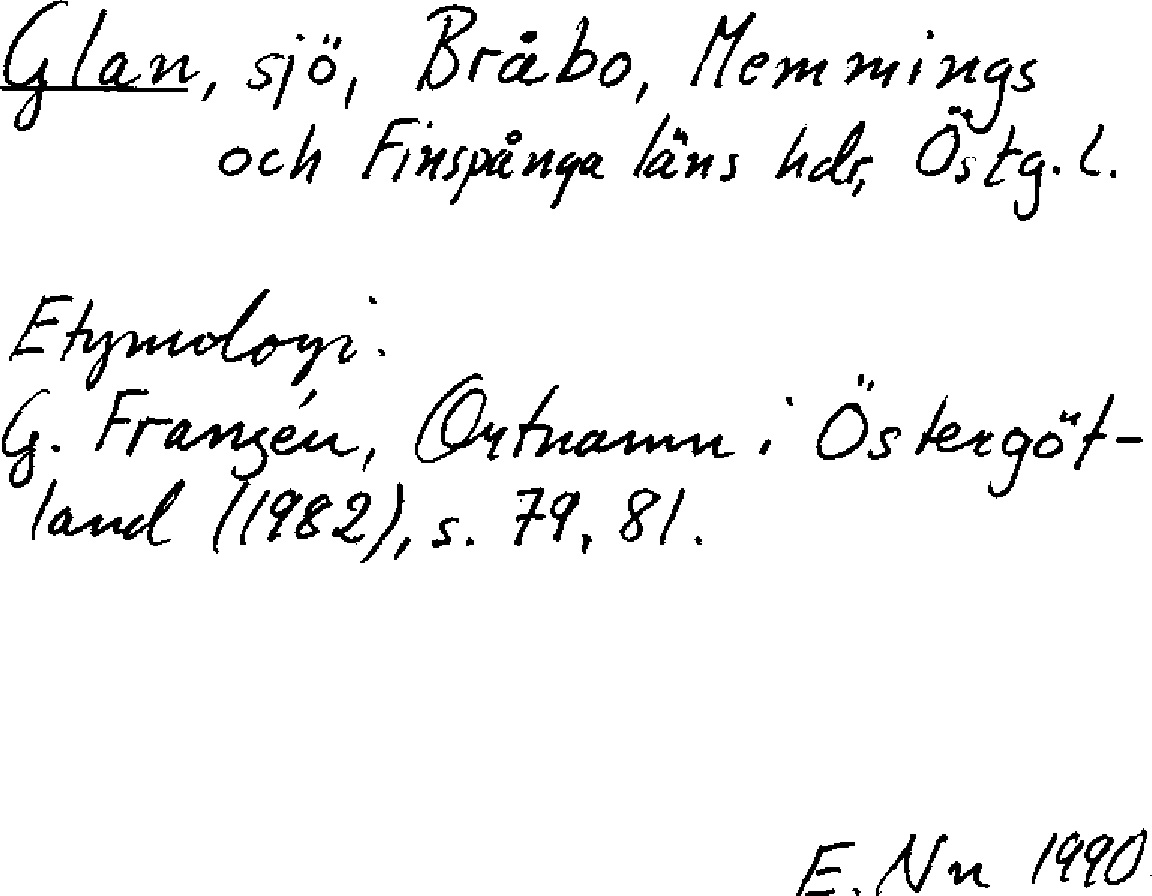 Glan, sjö, Bråbo, Memmings
och Finspånga läns hdr, Östg.l.
Etymologi.
G. Franzén, Ortnamn i Östergöt-
land (1982), s. 79, 81.
E. Nn 1990.